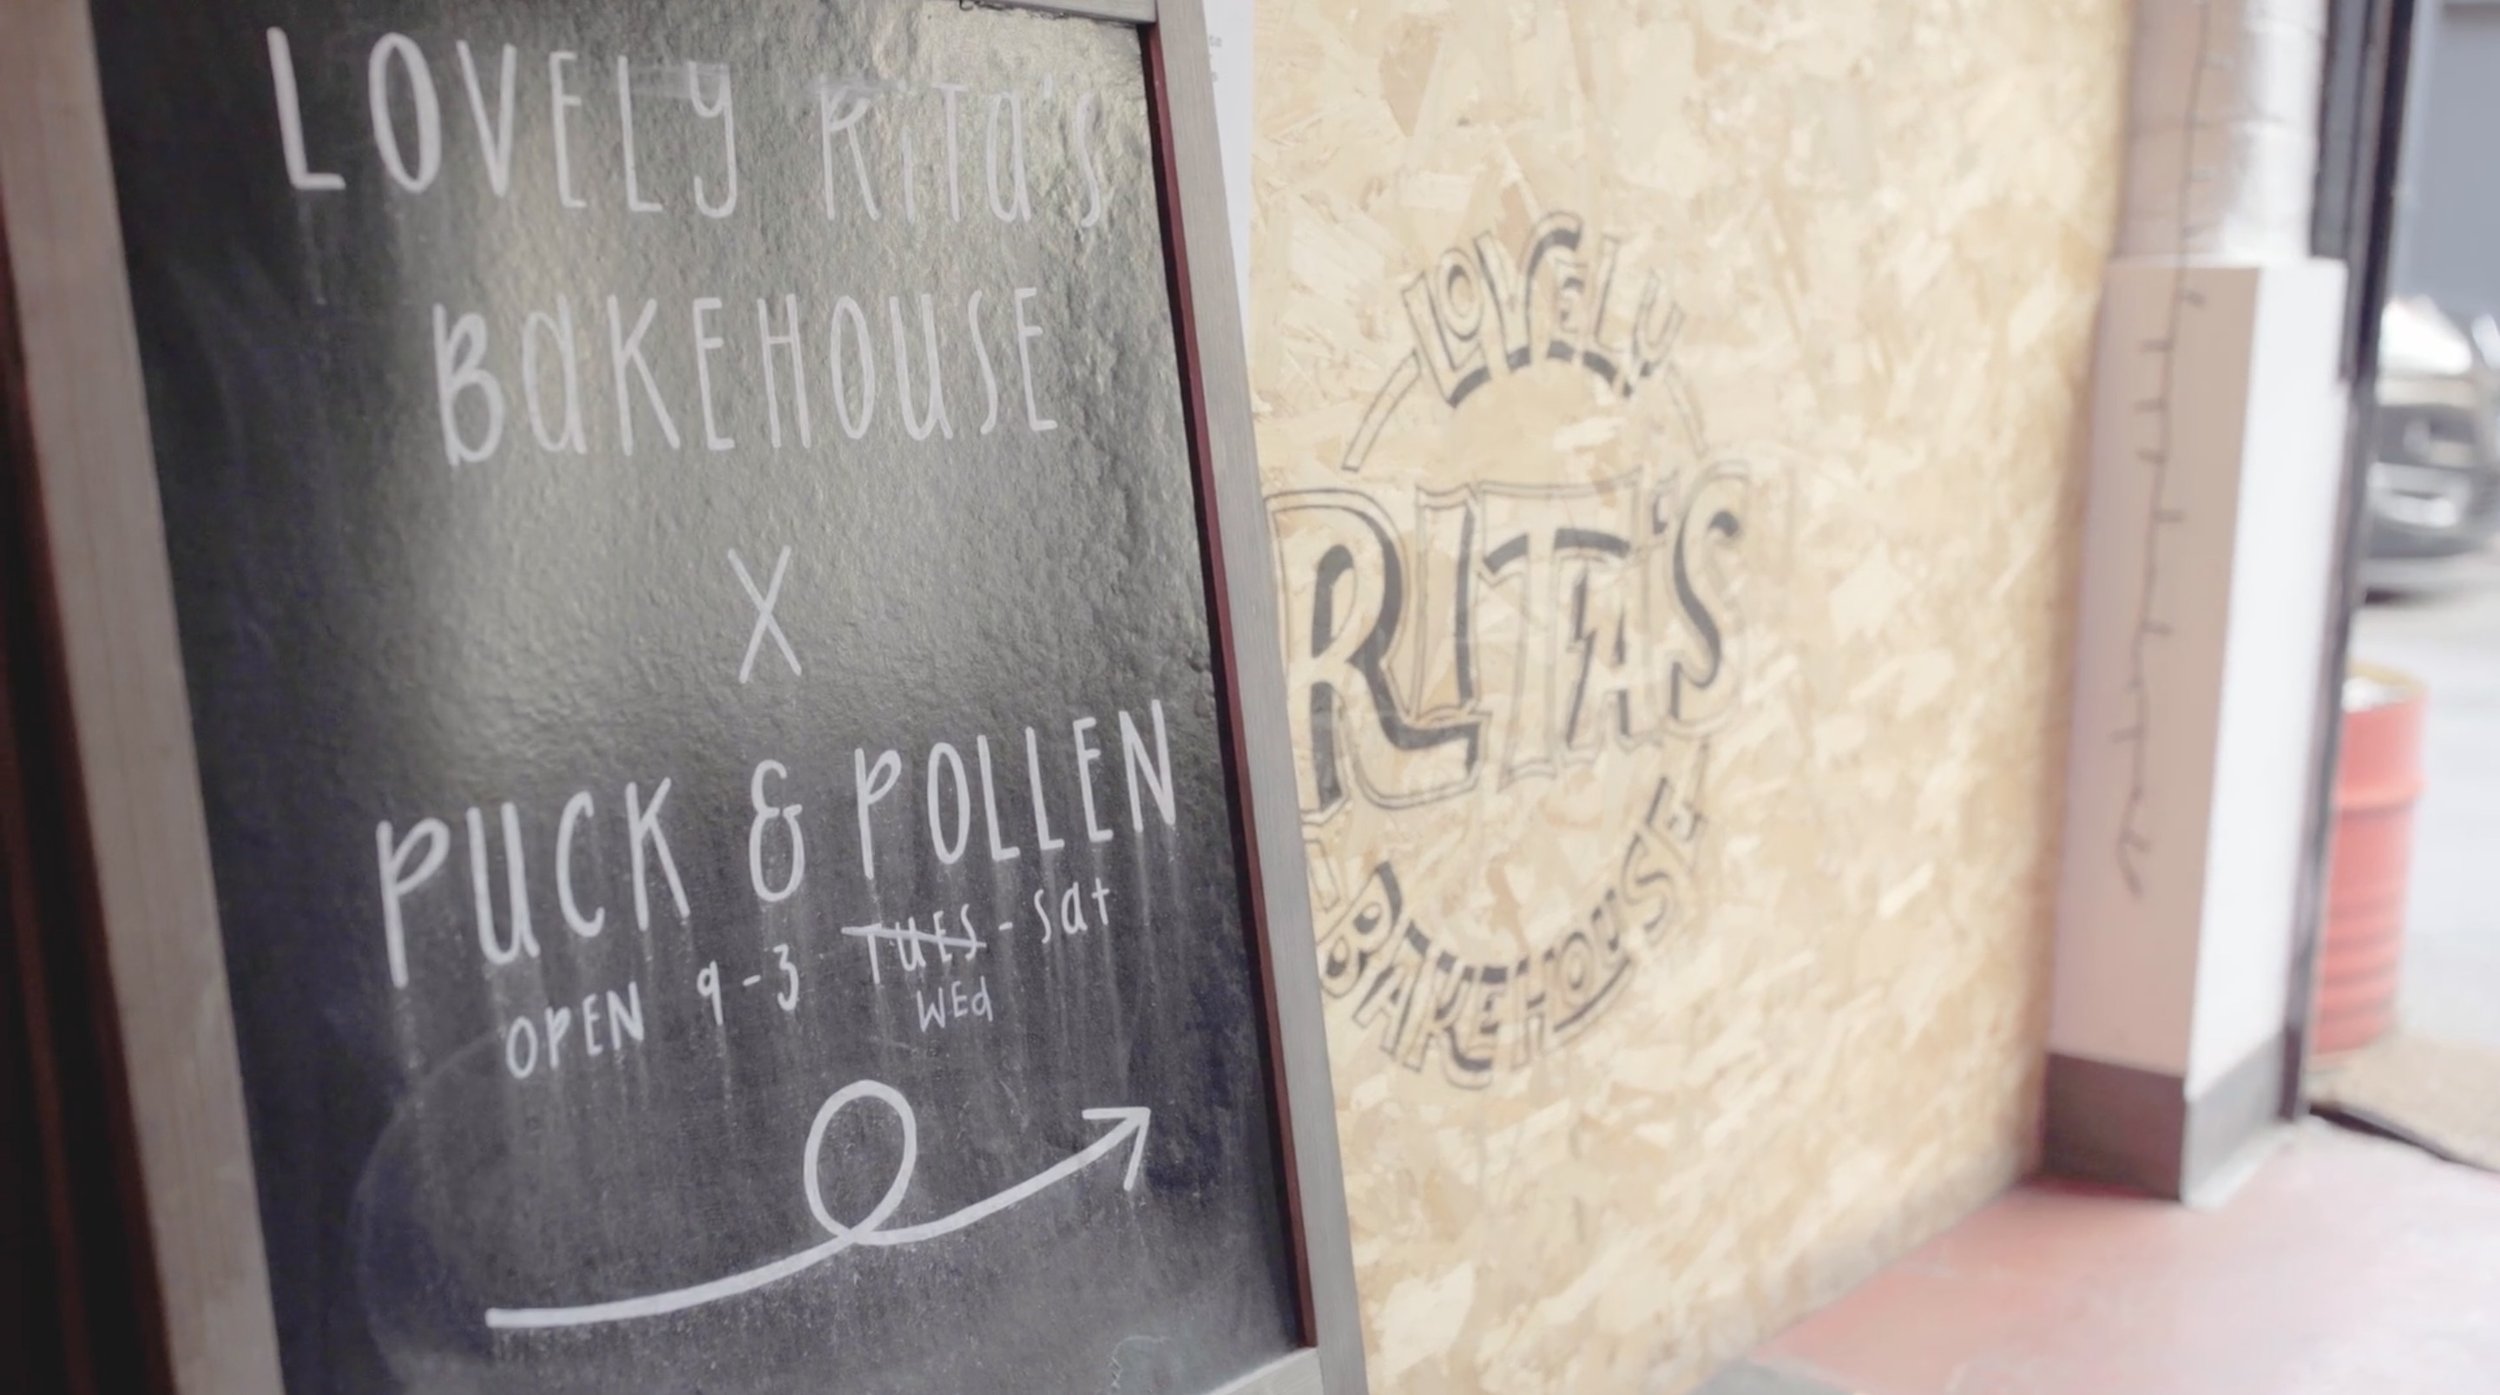 LOVELY RiTa's
BaKEHOUSE
X
PUCK & POLLEN
OPEN 9-3 TUES - sat
WEd
LOVELY
RITA'S
BAKEHOUSE